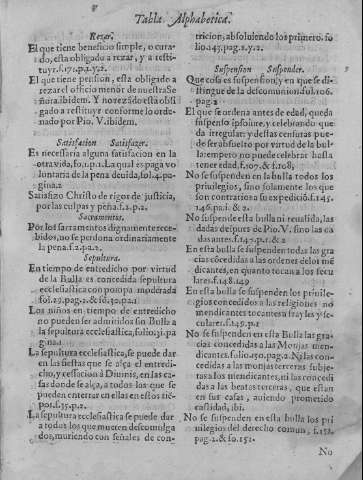 Tabla Alphabetica.
Rezar.
El que tiene beneficio simple, o cura-
do, esta obligado a rezar, y a resti-
tuyr. f.171.p.1.y.2.
El que tiene pension, esta obligado a
rezar el officio menor de nuestra Se
ñora. ibidem. Y no rezãdo està obli
gado a restituyr conforme lo orde-
nado por Pio .V. ibidem.
Satisfacion Satisfazer.
Es necessaria alguna satisfacion en la
otra vida, fo.1.p.1. La qual es paga vo
luntaria de la pena deuida, fol.4.pa-
gina.2
Satisfizo Christo de rigor de justicia,
por las culpas y pena. f.2.p.2.
Sacramentos.
Por los sarramentos dignamente rece-
bidos, no se perdona ordinariamente
la pena. f.2.p.2.
Sepultura.
En tiempo de entredicho por virtud
de la Bulla es concedida sepultura
ecclesiastica con pompa moderada
fol.29.pag.2. & fo.30.pa.1
Los niños en tiempo de entredicho
no pueden ser admitidos sin Bulla a
la sepultura ecclesiastica, folio.31.pa
gina.1
La sepultura ecclesiastica, se puede dar
en las fiestas que se alça el entredi-
cho, y cessacion à Diuinis, en las ca-
sas donde se alça, a todos los que se
pueden enterrar en ellas en estos tié
pos. f.35.p.2.
La sepultura ecclesiastica se puede dar
a todos los que mueren descomulga
dos, muriendo con señales de con-
tricion, absoluiendo los primero. fo
lio.145.pag.1.y.2.
Suspension Suspender.
Que cosa es suspension, y en que se di-
stingue de la descomunion. ful.106.
pag.2
El que se ordena antes de edad, queda
suspenso ipso iure, y celebrando que
da irregular: y destas censuras pue-
de ser absuelto por virtud de la bul-
la: empero no puede celebrar hasta
tener edad. f.107. & f.108.
No se suspenden en la bulla todos los
priuilegios, sino solamente los que
son contrarios a su expediciõ. f.145.
146.pa.1. & 2.
No suspende esta bulla ni reualida, las
dadas despues de Pio .V. sino las ca
das antes. f.147.p.1. & 2
En esta bulla se suspenden todas las gra
cias cõcedidas a las ordenes delos mé
dicantes, en quanto tocan a los secu
lares. f.148.149
En esta bulla se suspenden los priuile-
gios concedidos a las religiones no
mendicantes tocantes a frayles y se-
culares. f.149.p.1
No se suspenden en esta Bulla las gra-
cias concedidas a las Monjas men-
dicantes. folio.150.pag.2. Ni las con-
cedidas a las monjas terceras subje-
tas a los mendicantes, ni las concedi
das a las beatas terceras, que estan
en sus casas, auiendo prometido
castidad, ibi.
No se suspenden en esta bulla los pri
uilegios del derecho comun, f.151.
pag.2. & fo.152.
No